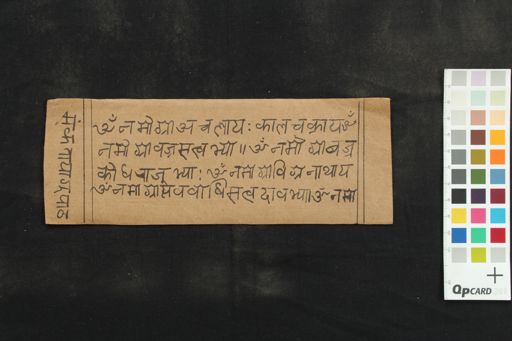 ॐ नमो श्री अचलाय: कालचक्राय ॐ
नमो श्री वज्रसत्वभ्या॥ ॐ नमो श्री वज्र
क्रोधराजभ्या: ॐ नमो श्री विघ्ननाथाय
ॐ नमो श्री बोधिसत्व ॐ नमो
QPCARD